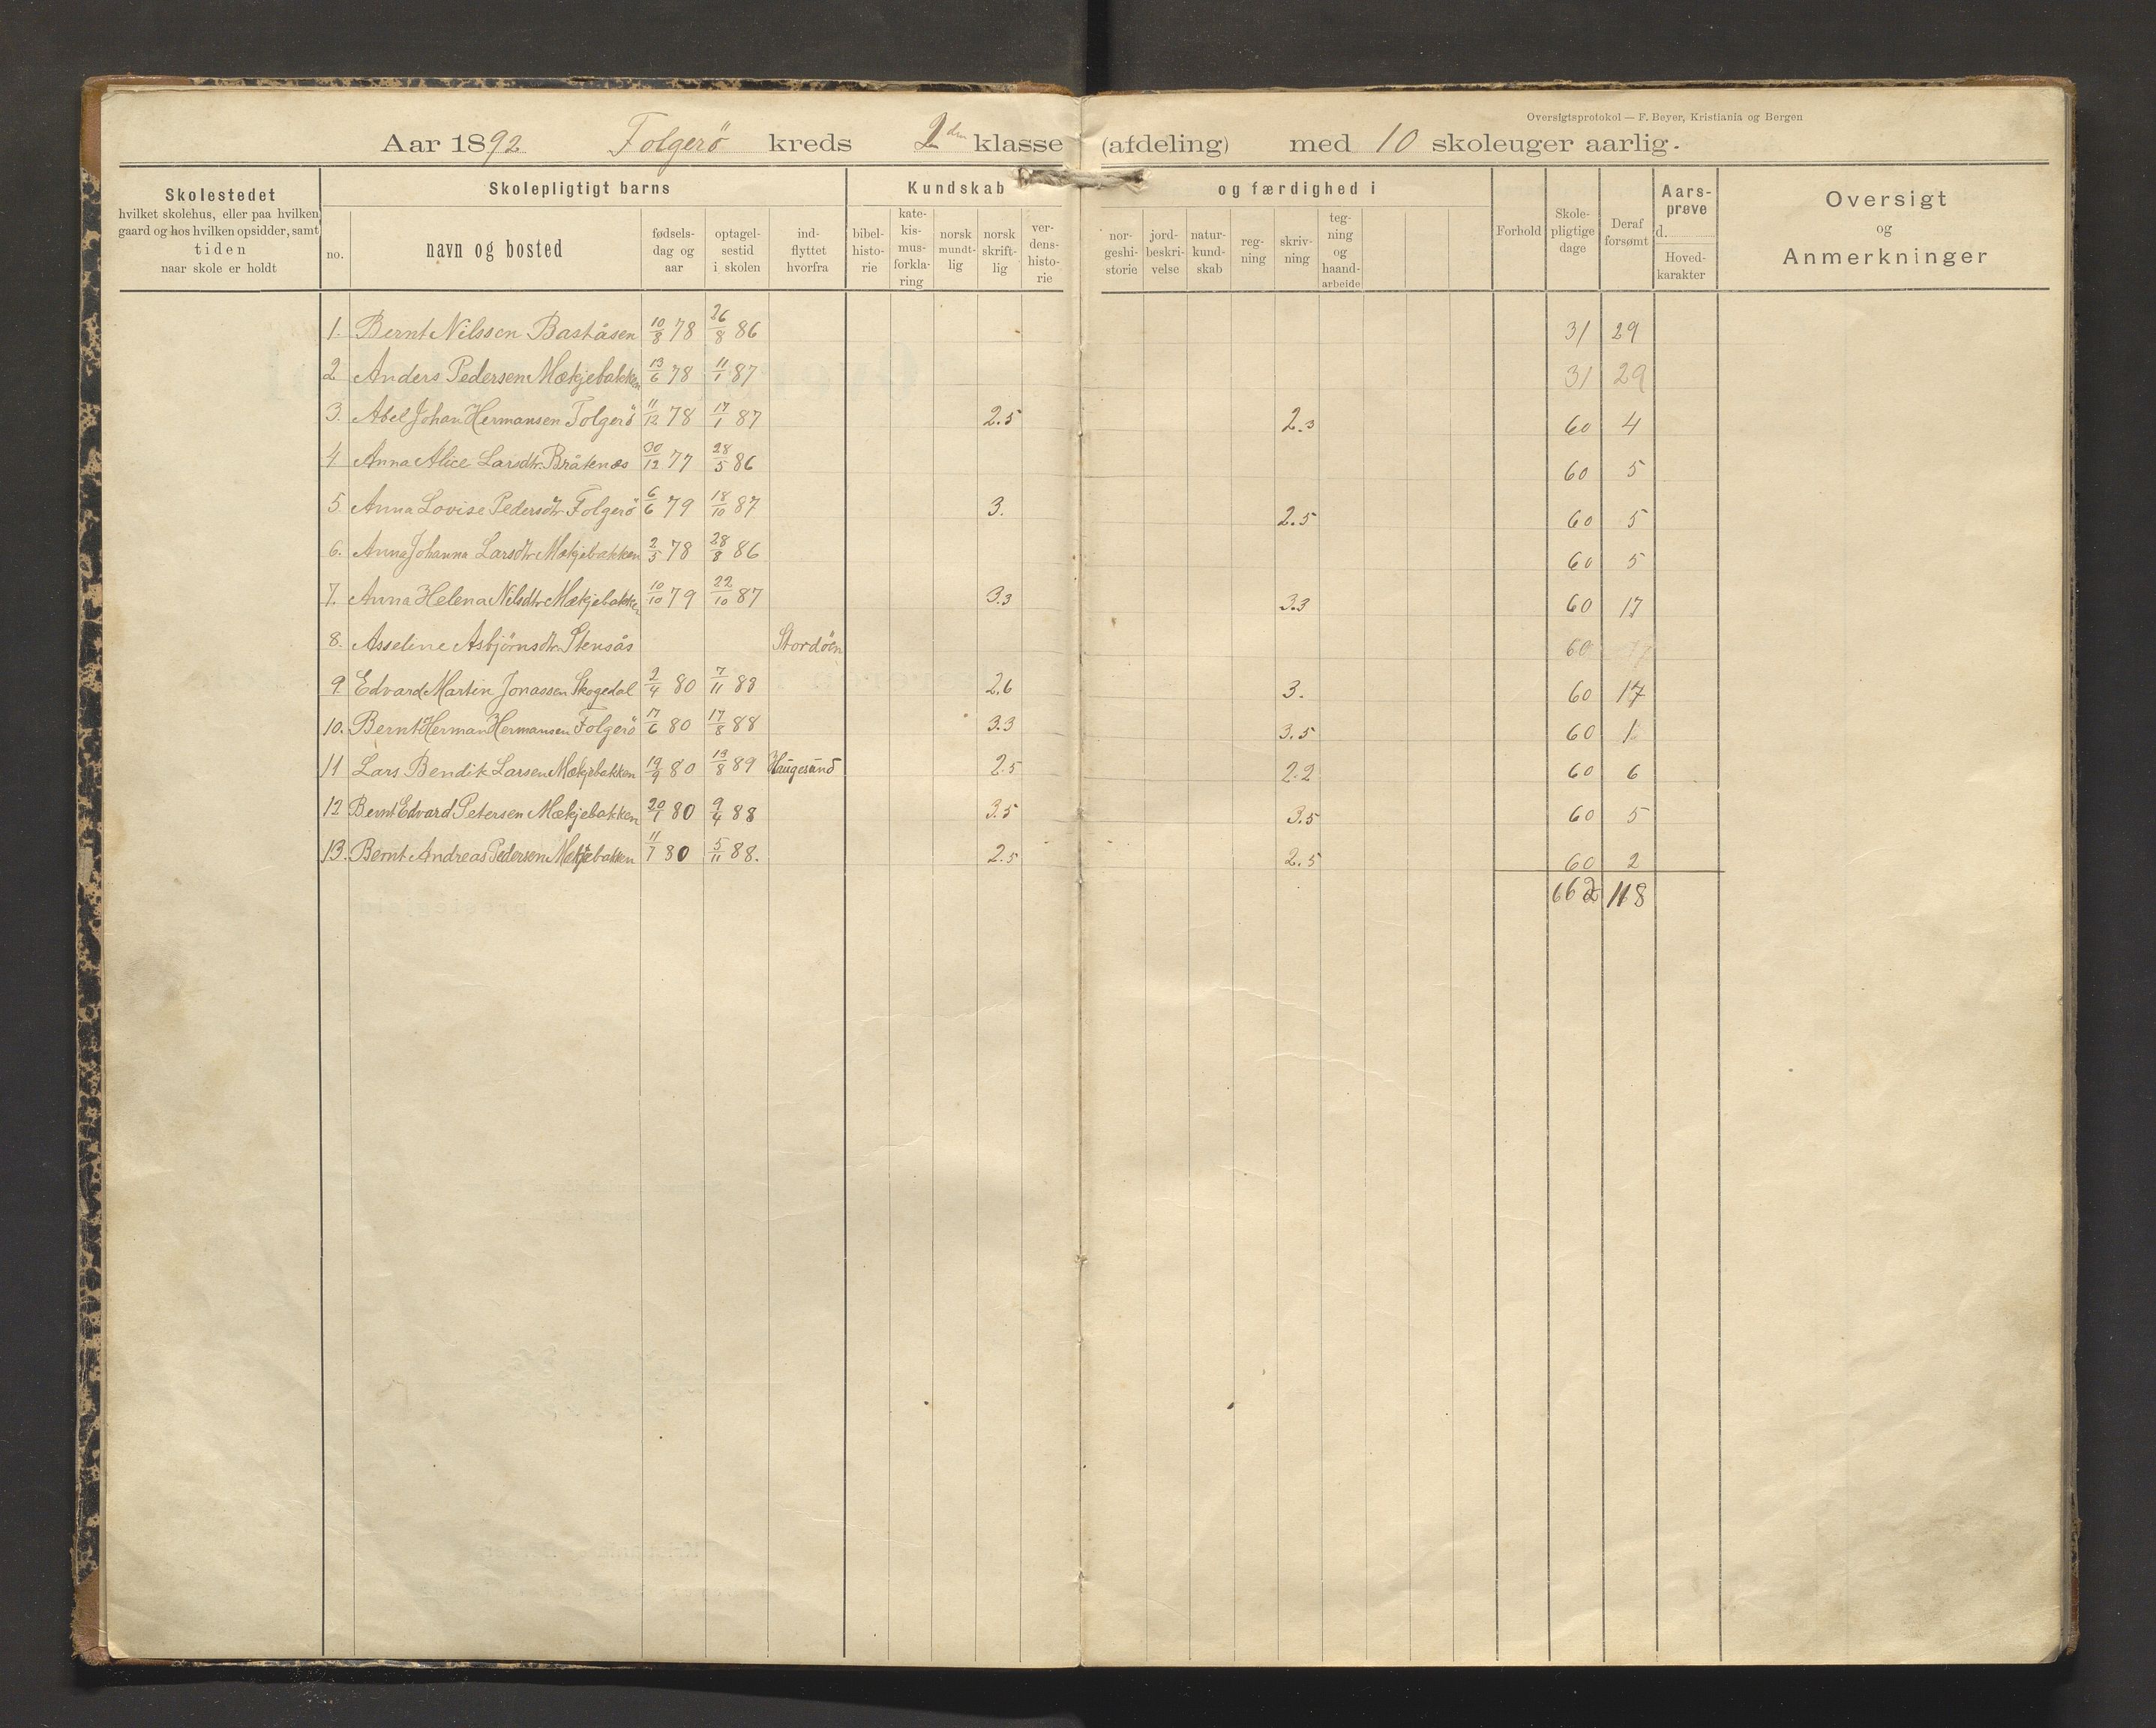 Oversigtsprotokol — F. Beyer, Kristiania og Bergen
Aar 1892 Folgerö kreds 2den klasse (afdeling) med 10 skoleuger aarlig.
Skolestedet
hvilket skolehus, eller paa hvilken
gaard og hos hvilken opsidder, samt
tiden
naar skole er holdt
Skolepligtigt barns
no.
navn og bosted
fødsels-
dag og
aar
optagel-
sestid
i skolen
ind-
flyttet
hvorfra
Kundskab og færdighed i
bibel-
histo-
rie
kate-
kis-
mus-
forkla-
ring
norsk
mundt-
lig
norsk
skrift-
lig
ver-
dens-
histo-
rie
nor-
geshi-
storie
jord-
beskri-
velse
natur-
kund-
skab
reg-
ning
skriv-
ning
teg-
ning
og
haand-
arbeide
Forhold
Skole-
pligtige
dage
Deraf
forsømt
Aars-
prøve
d.
Hoved-
karakter
Oversigt
og
Anmerkninger
1. Bernt Nilssen Baståsen 10/8 78 26/8 86 31 29
2 Anders Pedersen Mækjebakken 13/6 78 11/1 87 31 29
3. Abel Johan Hermansen Folgerö 11/12 78 17/1 87 2.5 2.3 60 4
4 Anna Alice Larsdtr Bråtenæs 30/12 77 28/5 86 60 5
5. Anna Lovise Pedersdtr Folgerö 6/6 79 18/10 87 3. 2.5 60 5
6. Anna Johanna Larsdtr Mækjebakken 2/5 78 28/8 86 60 5
7. Anna Helena Nilsdtr Mækjebakken 10/10 79 22/10 87 3.3 3.3 60 17
8. Asseline Asbjörnsdtr. Stensås Stordöen 60
9 Edvard Martin Jonassen Skogedal 2/4 80 7/11 88 2.6 3. 60 17
10. Bernt Herman Hermansen Folgerö 17/6 80 17/8 88 3.3 3.5 60 1
11 Lars Bendik Larsen Mækjebakken 19/9 80 19/8 89 Haugesund 2.5 2.2 60 6
12 Bernt Edvard Petersen Mækjebakken 20/1 80 9/4 88 3.5 3.5 60 5
13. Bernt Andreas Pedersen Mækjebakken 11/7 80 5/11 88. 2.5 2.5 60 2
662 118